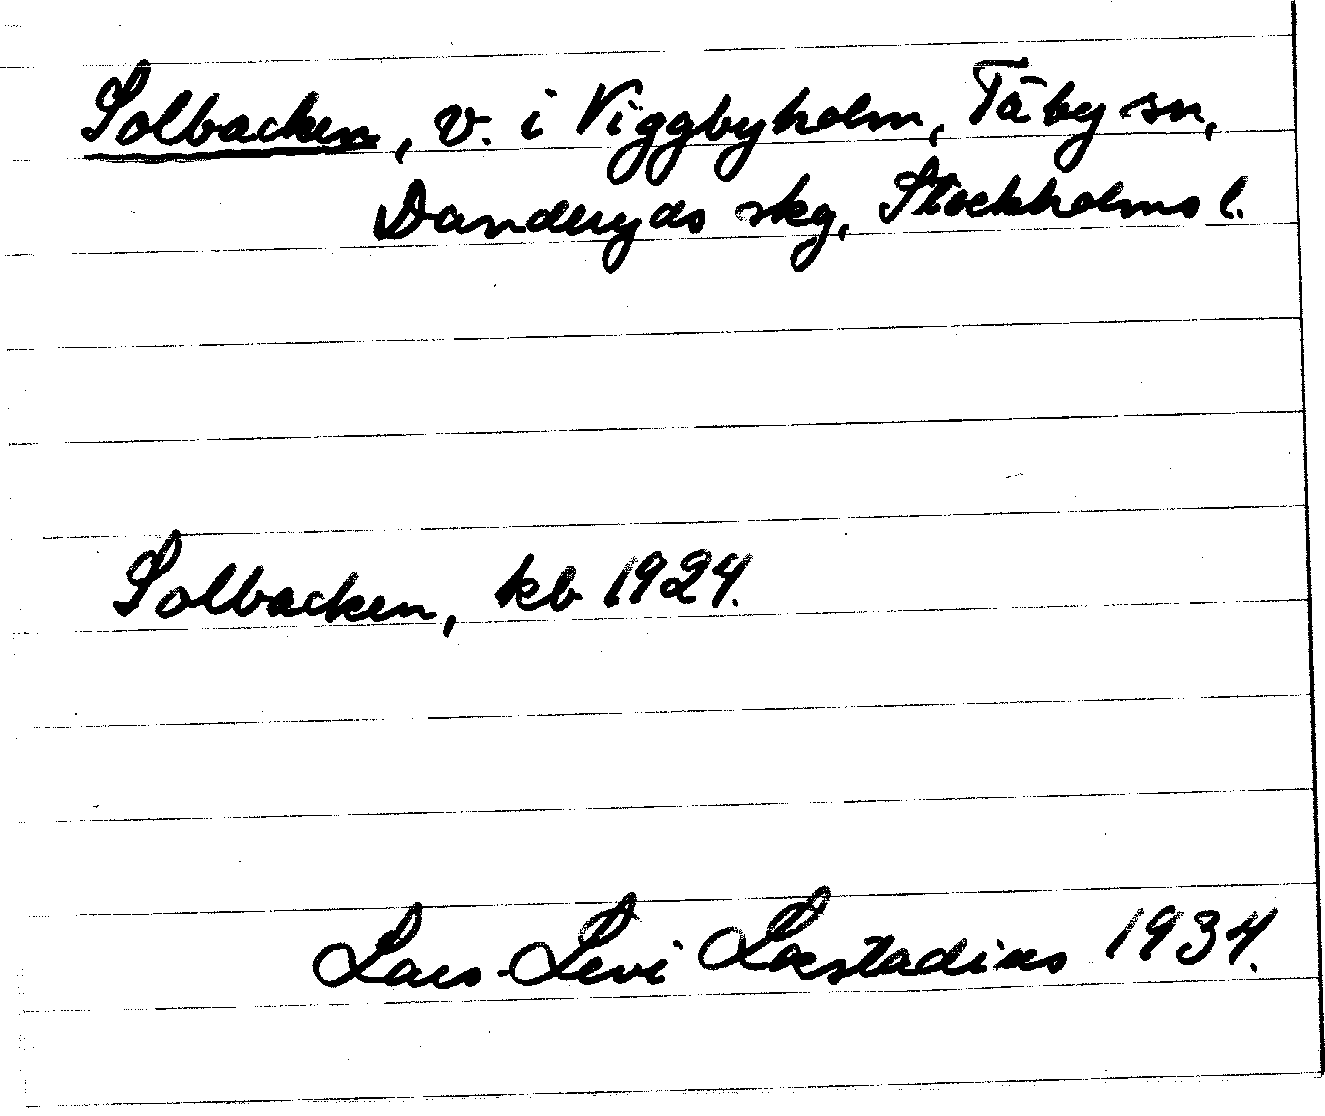 Solbacken, v. i Viggbyholm, Täby sn,
Danderyds skg, Stockholms l.
Solbacken, kb 1924.
Lars-Levi Læstadius 1934.